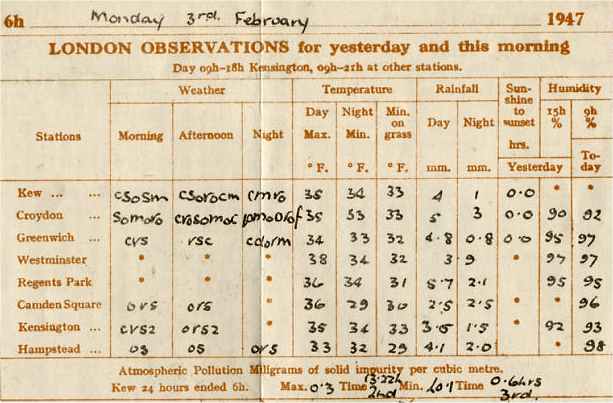 6h Monday 3rd. February 1947
LONDON OBSERVATIONS for yesterday and this morning
Day 09h-18h Kensington, 09h-21h at other stations.
Weather Temperature Rainfall Sun-shine to sunset Humidity
Stations Morning Afternoon Night Day Max. Night Min. Min. on grass Day Night hrs. 15h % 9h %
° F. ° F. ° F. mm. mm. Yesterday To-day
Kew ... ... csosm csorocm cmro 35 34 33 4 1 0.0 * *
Croydon ... somoro crosomoc 35 33 33 5 3 0.0 90 92
Greenwich ... crs rsc cdorm 34 33 32 4.8 0.8 0.0 95 97
Westminster * * * 38 34 32 3 9 * 97 97
Regents Park * * * 36 34 31 5.7 2.1 95 95
Camden Square ors ors * 36 29 30 2.5 2.5 * * 96
Kensington ... crs2 ors2 * 35 34 33 3.5 1.5 * 92 93
Hampstead ... o3 o5 ors 33 32 29 4.1 2.0 * 98
Atmospheric Pollution Milligrams of solid impurity per cubic metre.
Kew 24 hours ended 6h. Max. 0.3 Time 13.22h 2nd Min. Time 0.6hrs 3rd.